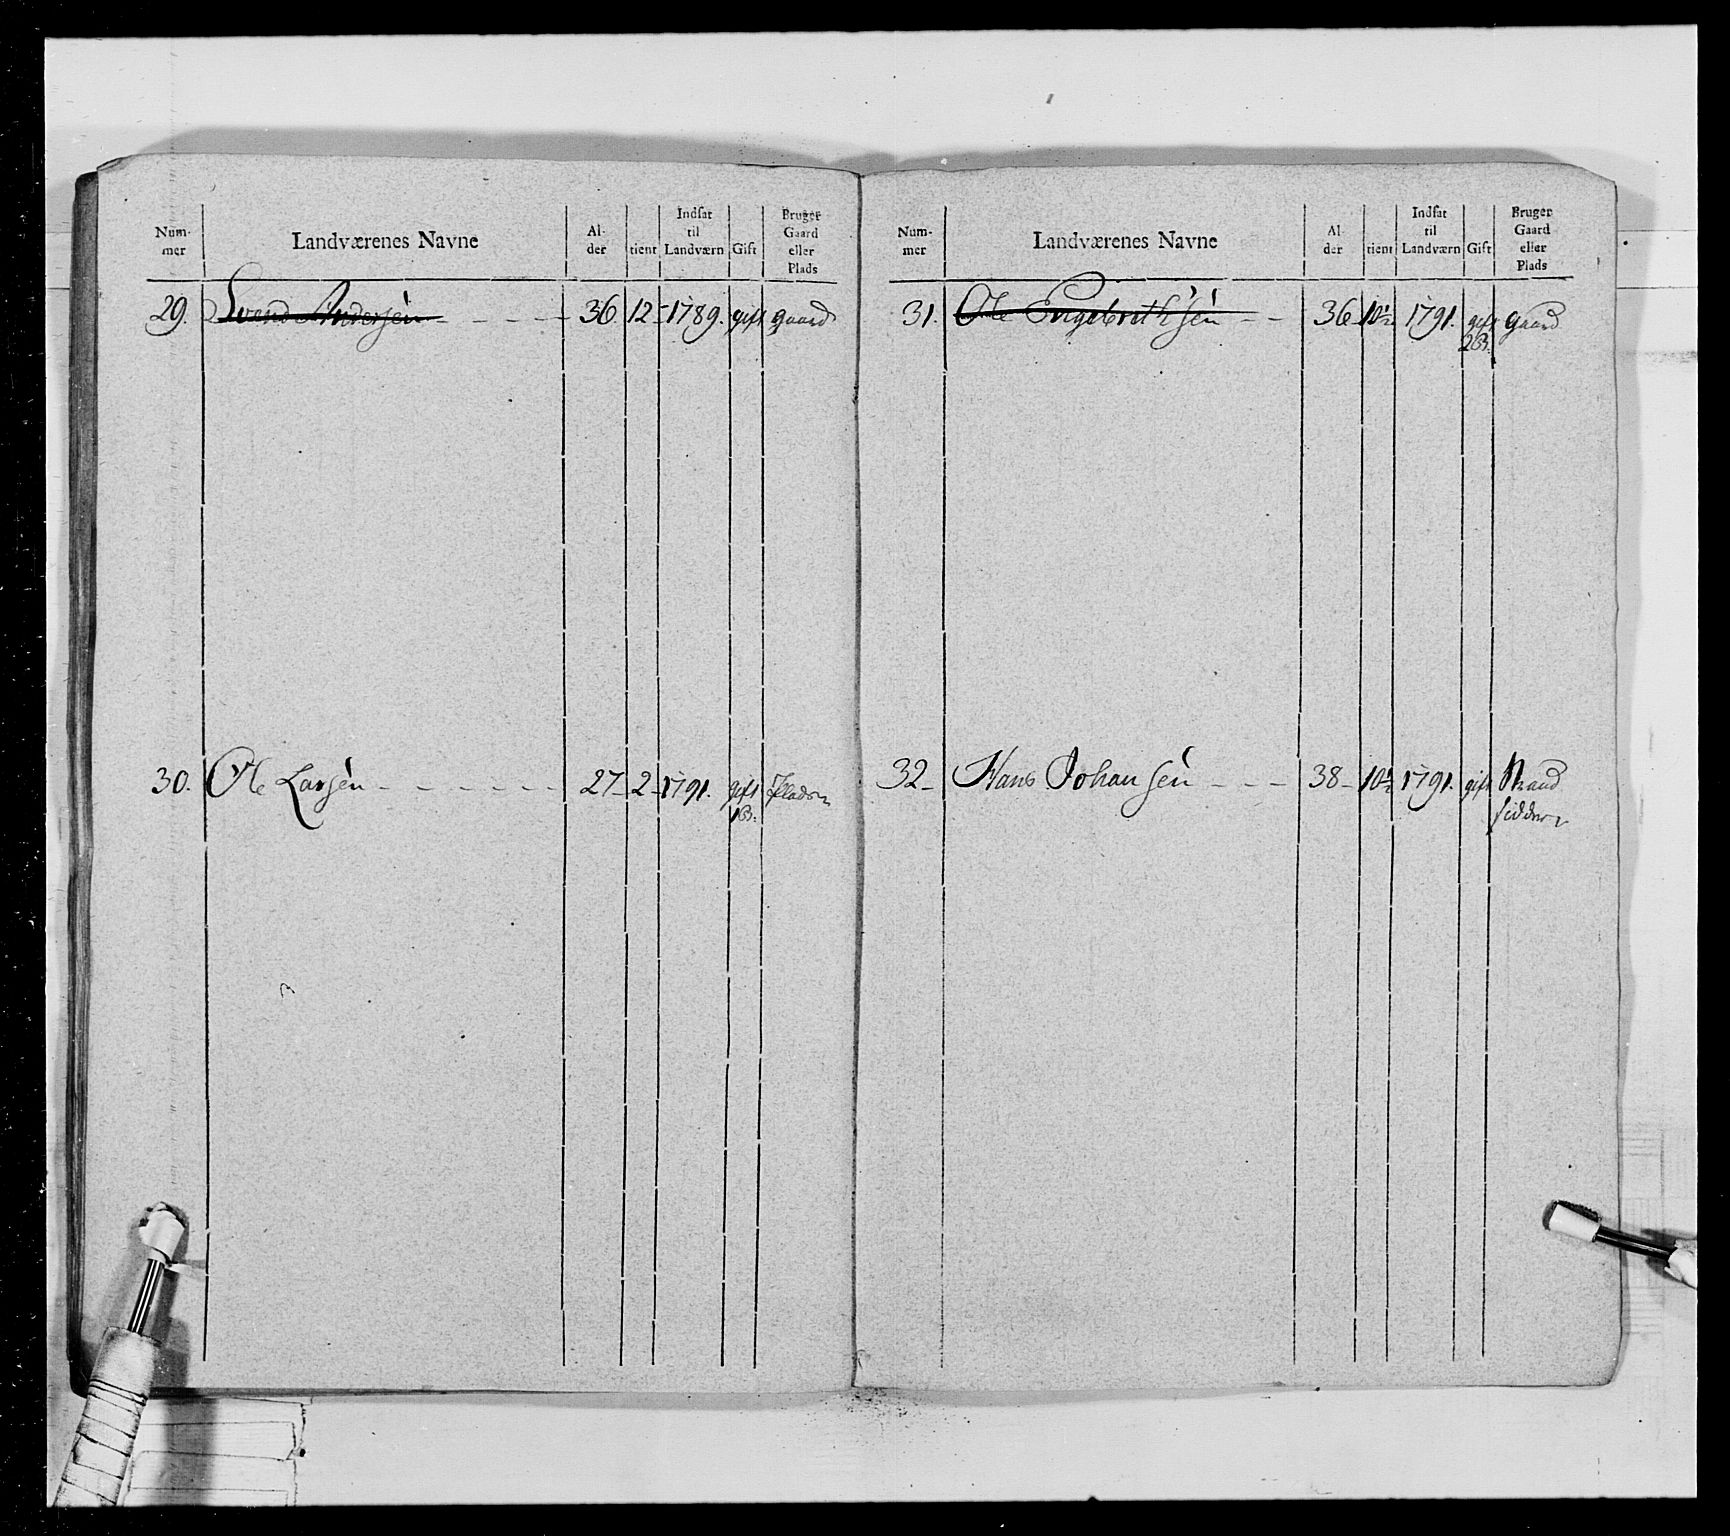 Num-
mer
Landværenes Navne
Al-
der
tient
Indsat
til
Landværn
Gift
Bruger
Gaard
eller
Plads
29. Svend Andersen 36 12 1789. gift gaard
30. Ole Larsen 27 2 1791. gift Pladsm
1B.
Num-
mer
Landværenes Navne
Al-
der
tient
Indsat
til
Landværn
Gift
Bruger
Gaard
eller
Plads
31. Ole Engebrethsen 36 10½ 1791. gift gaard
2B.
32 Hans Johansen 38 10½ 1791. gift Strand
sidder